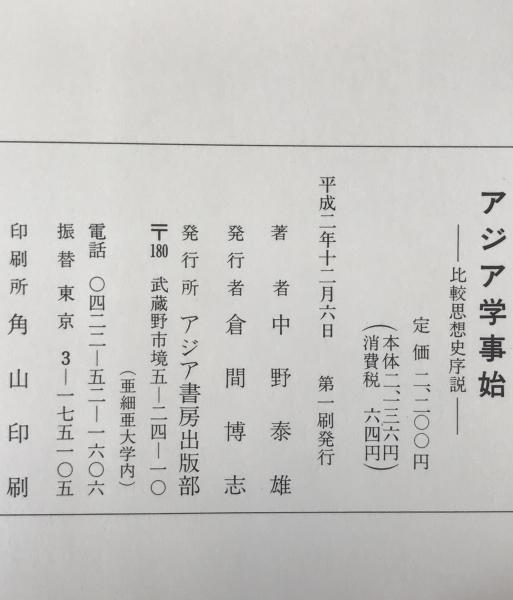 アジア学事始
――比較思想史序説――
定価 二、二〇〇円
(本体二、一三六円
消費税 六四円)
平成二年十二月六日 第一刷発行
著者 中野泰雄
発行者 倉間博志
発行所 アジア書房出版部
〒180 武蔵野市境五―二四―一〇
(亜細亜大学内)
電話 〇四二二―五二―一六〇六
振替 東京 3―一七五一〇五
印刷所 角山印刷